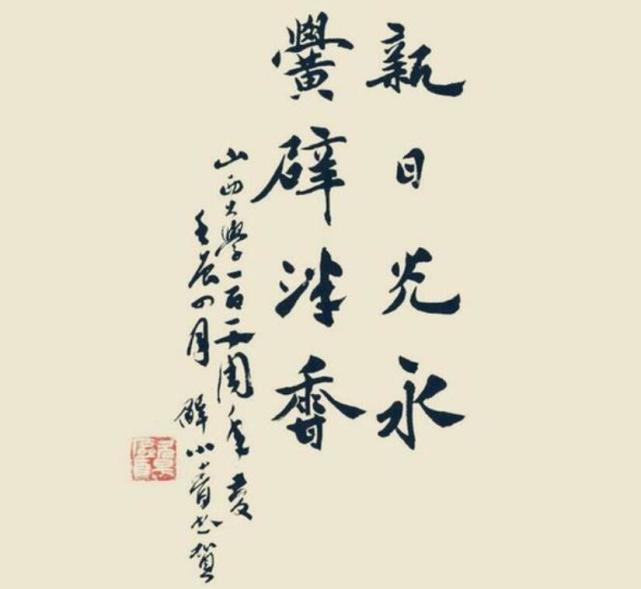 新日光永
黌辟泮香
山西大學一百一十周年慶
壬辰四月 解小青書賀